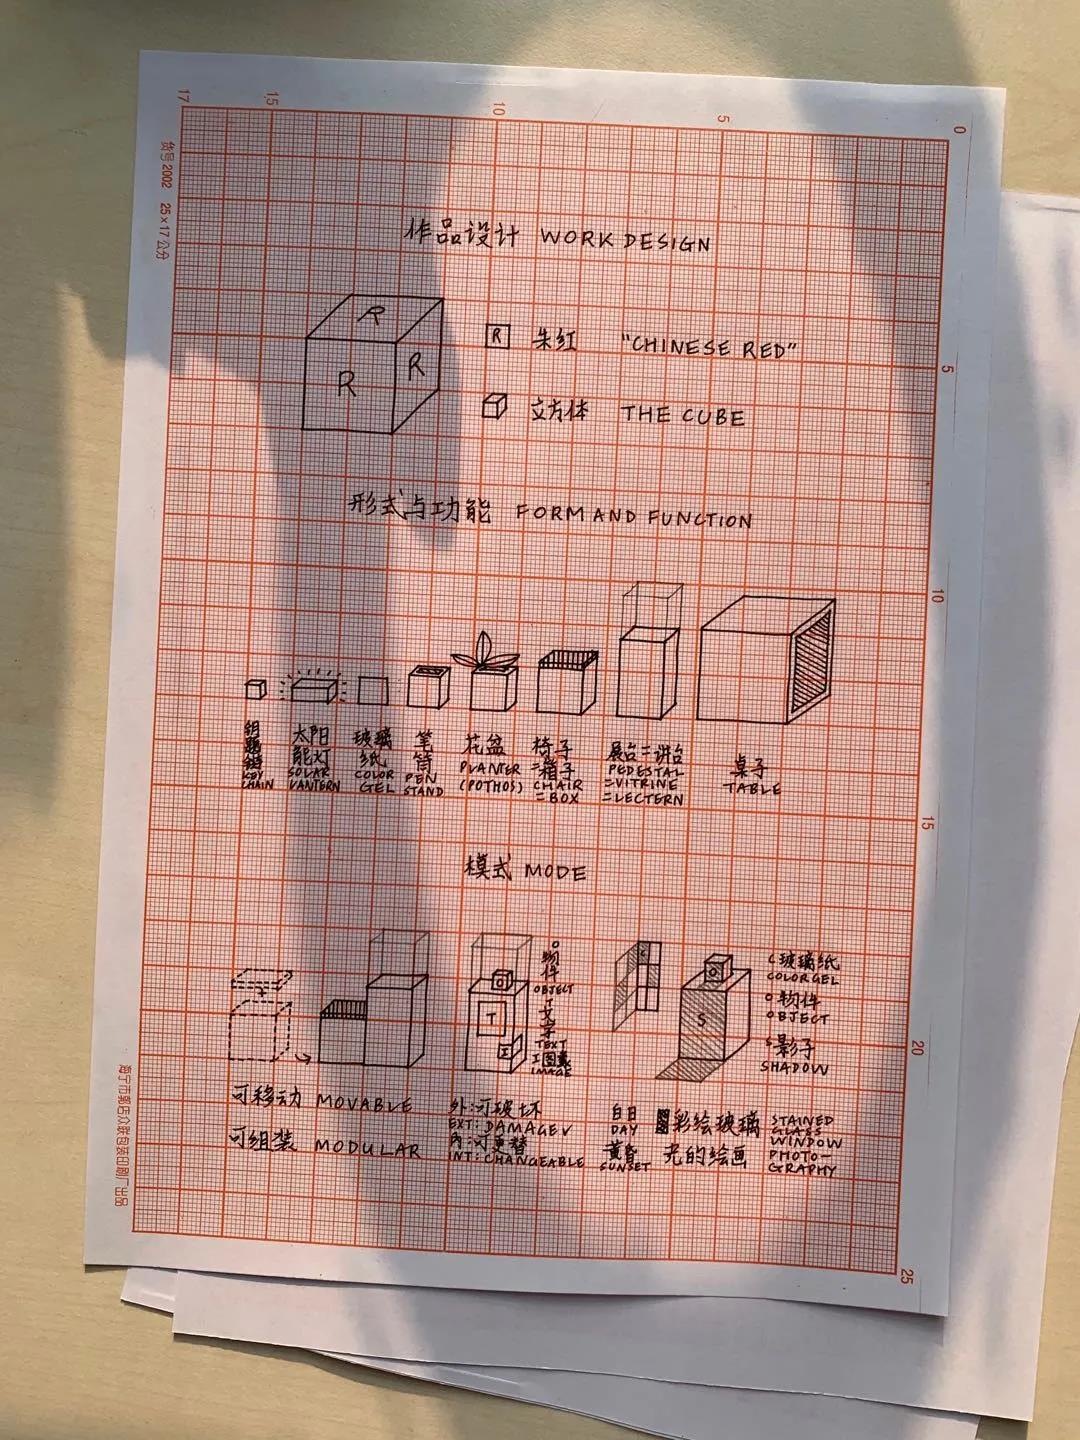 17
15
10
5
0
货号2002 25×17公分
作品设计 WORK DESIGN
R
R
R
R 朱红 "CHINESE RED"
立方体 THE CUBE
5
形式与功能 FORM AND FUNCTION
10
钥匙链
KEY
CHAIN
太阳
能灯
SOLAR
LANTERN
玻璃
纸
COLOR
GEL
笔
筒
PEN
STAND
花盆
PLANTER
(POTHOS)
椅子
=箱子
CHAIR
=BOX
展台=讲台
PEDESTAL
=VITRINE
=LECTERN
桌子
TABLE
15
模式 MODE
O
T
I
O
物
件
OBJECT
T
文
字
TEXT
I图像
IMAGE
C
O
S
C玻璃纸
COLOR GEL
O物件
OBJECT
S影子
SHADOW
20
可移动 MOVABLE
可组装 MODULAR
外:可破坏
EXT: DAMAGEV
内:可更替
INT: CHANGEABLE
白日
DAY
黄昏
SUNSET
彩绘玻璃
光的绘画
STAINED
GLASS
WINDOW
PHOTO-
GRAPHY
25